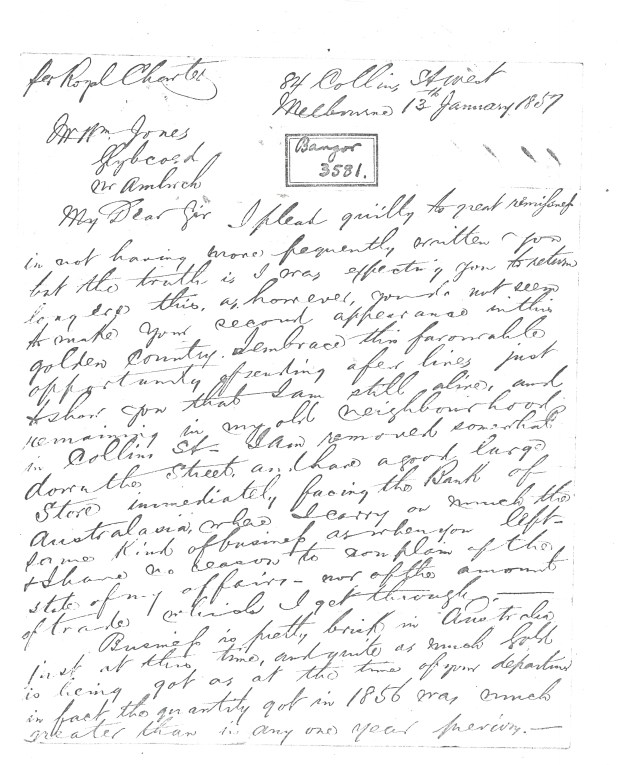 per Royal Charter
84 Collins St West
Melbourne 13th January 1857
Mr Wm. Jones
nr Amlwch
Bangor
3581.
My Dear Sir I plead guilty to great remissness
in not having more frequently written you
but the truth is I was expecting you to return
long ere this, as, however, you do not seem
to make your second appearance in this
golden Country. I embrace this favourable
opportunity of sending a few lines just
to shew you that I am still alive, and
remaining in my old neighbourhood
in Collins St I am removed somewhat
down the Street, and have a good large
Store immediately facing the Bank of
Australasia, where I carry on much the
same kind of business as when you left
& I have no reason to complain of the
state of my affairs - nor of the amount
of trade which I get through. —
Business is pretty brisk in Australia
just at this time, and quite as much Gold
is being got as at the time of your departure
in fact the quantity got in 1856 was much
greater than in any one year previous. —